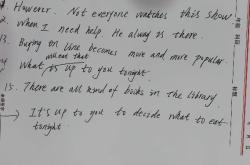 However. Not everyone watches this show
2. When I need help. He always is there.
13. Buying on line becomes more and more popular.
will eat that
What is up to you tonight.
15. There are all kind of books in the library
→ It's up to you to decide what to eat
tonight